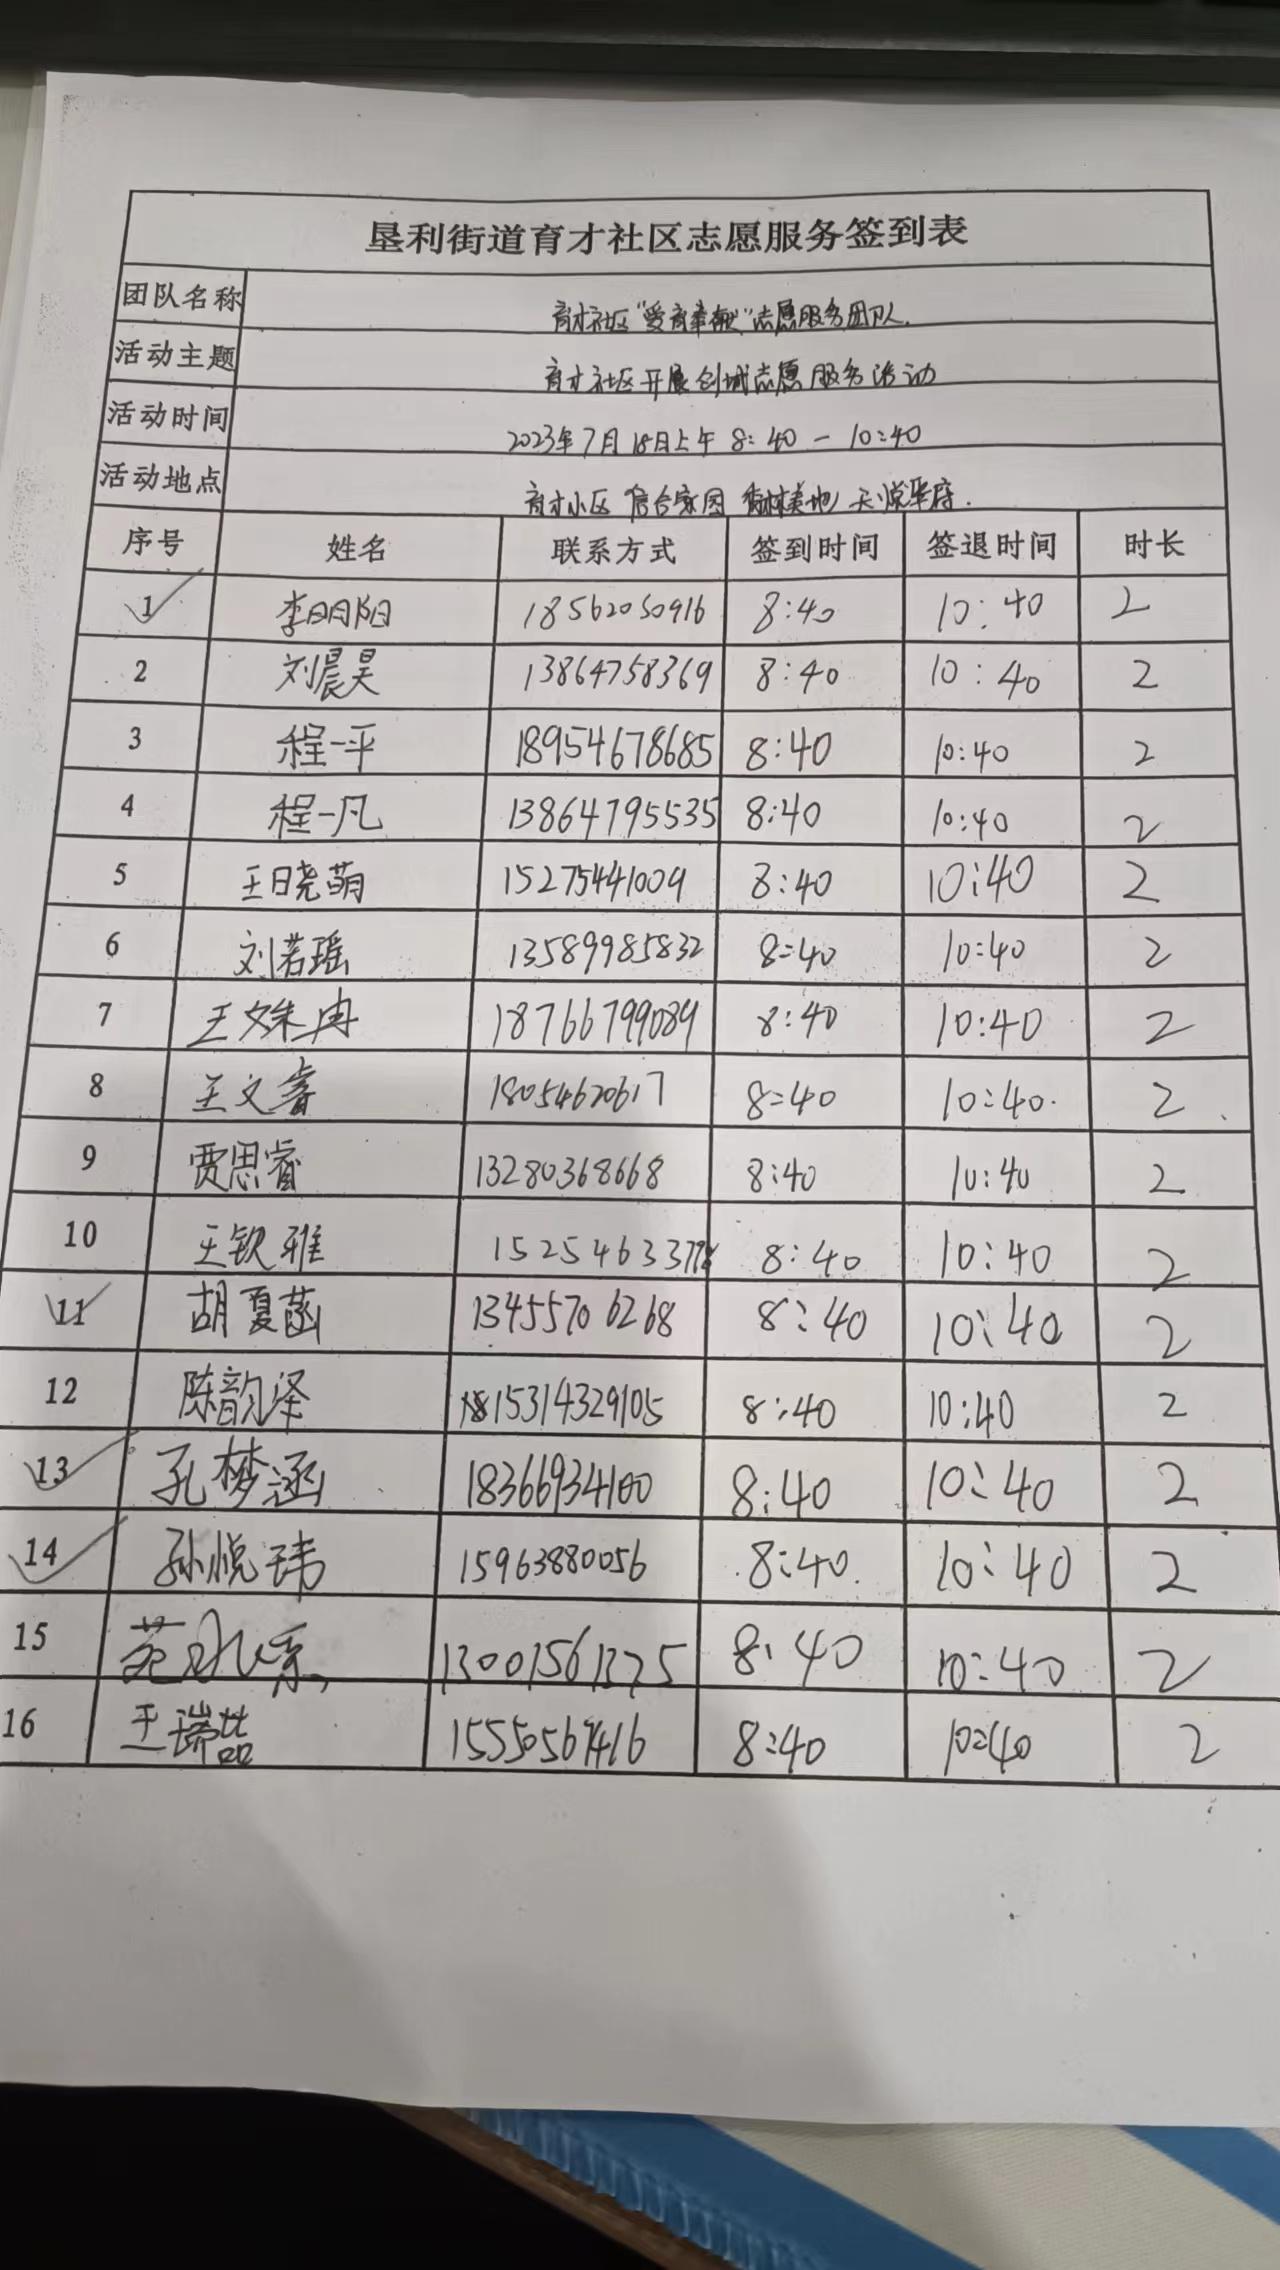 垦利街道育才社区志愿服务签到表
团队名称 育才社区“爱育奉献”志愿服务团队.
活动主题 育才社区开展创城志愿服务活动
活动时间 2023年7月18日上午 8:40 — 10:40
活动地点 育才小区 信合家园 香林美地 天悦华府.
序号 姓名 联系方式 签到时间 签退时间 时长
1 李明阳 18562050916 8:40 10:40 2
2 刘晨昊 13864758369 8:40 10:40 2
3 程一平 18954678685 8:40 10:40 2
4 程一凡 13864795535 8:40 10:40 2
5 王晓萌 15275441009 8:40 10:40 2
6 刘若瑶 13589985832 8:40 10:40 2
7 王姝冉 18766799089 8:40 10:40 2
8 王文睿 18054620617 8:40 10:40. 2
9 贾思睿 13280368668 8:40 10:40 2
10 王钦雅 8:40 10:40 2
11 胡夏菡 13455706268 8:40 10:40 2
12 陈韵泽 15314329105 8:40 10:40 2
13 孔梦涵 18366934100 8:40 10:40 2
14 孙悦玮 15963880056 8:40. 10:40 2
15 13001561325 8:40 10:40 2
16 王瑞喆 8:40 10:40 2